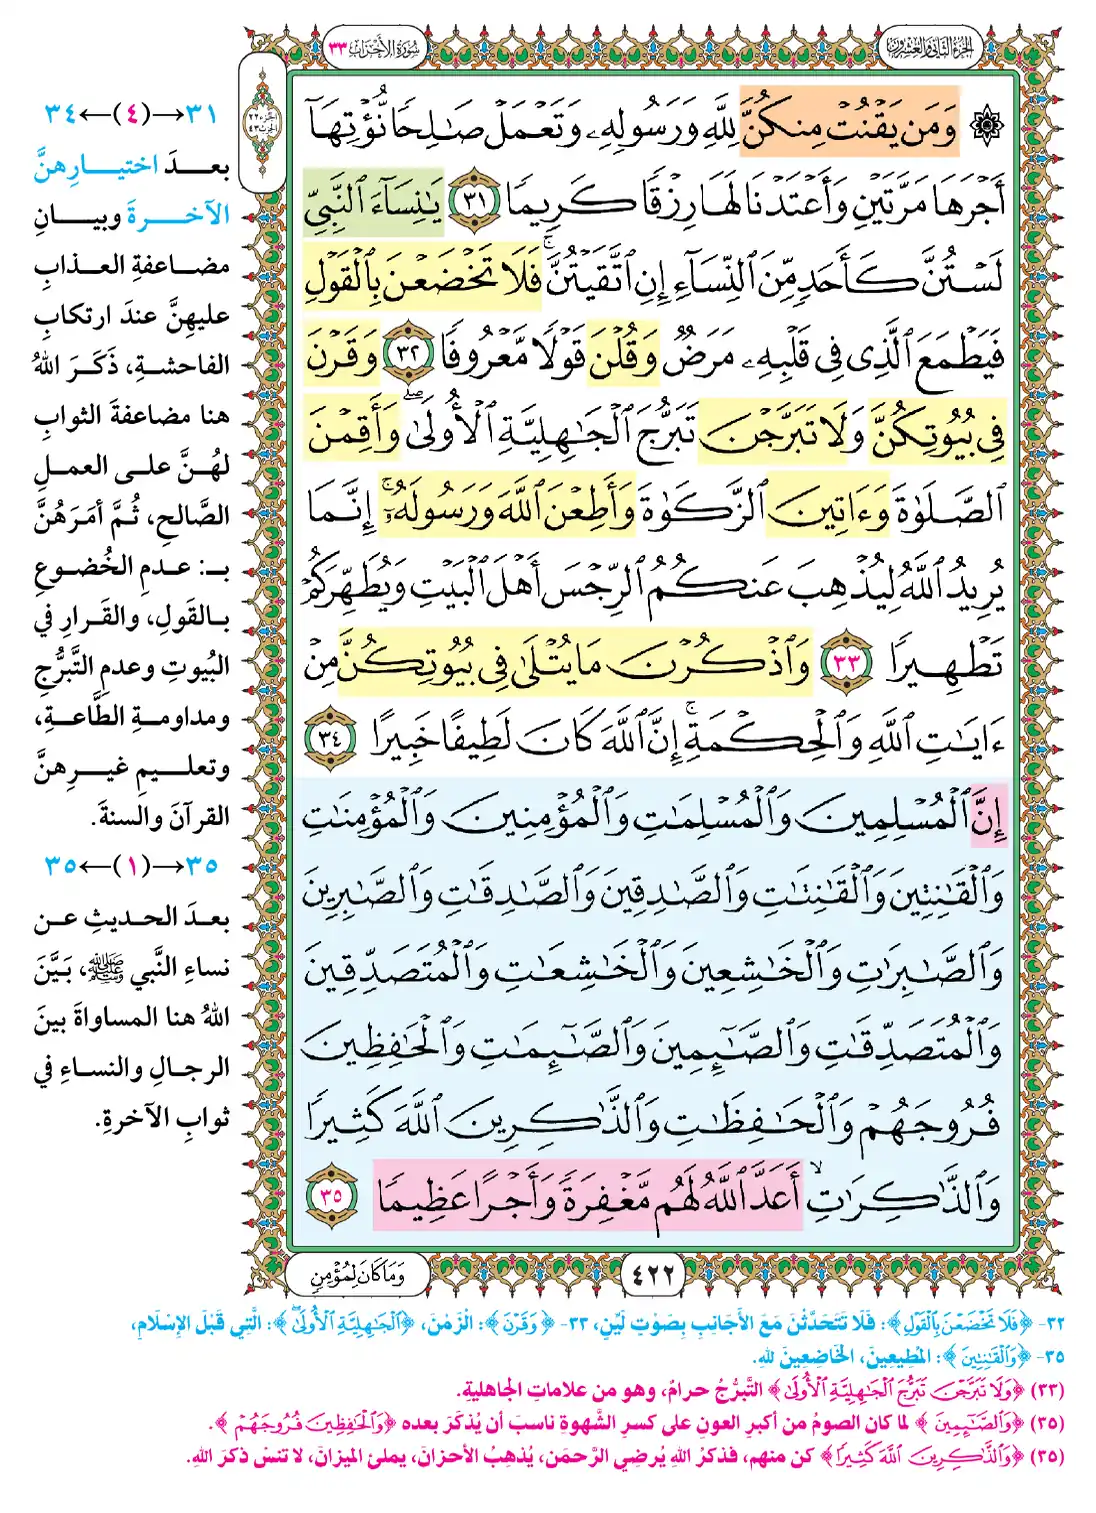 الجزء الثاني والعشرون
سورة الأحزاب ٣٣
۞ وَمَن يَقْنُتْ مِنكُنَّ لِلَّهِ وَرَسُولِهِۦ وَتَعْمَلْ صَٰلِحًا نُّؤْتِهَآ
أَجْرَهَا مَرَّتَيْنِ وَأَعْتَدْنَا لَهَا رِزْقًا كَرِيمًا ٣١ يَٰنِسَآءَ ٱلنَّبِىِّ
لَسْتُنَّ كَأَحَدٍ مِّنَ ٱلنِّسَآءِ إِنِ ٱتَّقَيْتُنَّۚ فَلَا تَخْضَعْنَ بِٱلْقَوْلِ
فَيَطْمَعَ ٱلَّذِى فِى قَلْبِهِۦ مَرَضٌ وَقُلْنَ قَوْلًا مَّعْرُوفًا ٣٢ وَقَرْنَ
فِى بُيُوتِكُنَّ وَلَا تَبَرَّجْنَ تَبَرُّجَ ٱلْجَٰهِلِيَّةِ ٱلْأُولَىٰۖ وَأَقِمْنَ
ٱلصَّلَوٰةَ وَءَاتِينَ ٱلزَّكَوٰةَ وَأَطِعْنَ ٱللَّهَ وَرَسُولَهُۥٓۚ إِنَّمَا
يُرِيدُ ٱللَّهُ لِيُذْهِبَ عَنكُمُ ٱلرِّجْسَ أَهْلَ ٱلْبَيْتِ وَيُطَهِّرَكُمْ
تَطْهِيرًا ٣٣ وَٱذْكُرْنَ مَا يُتْلَىٰ فِى بُيُوتِكُنَّ مِنْ
ءَايَٰتِ ٱللَّهِ وَٱلْحِكْمَةِۚ إِنَّ ٱللَّهَ كَانَ لَطِيفًا خَبِيرًا ٣٤
إِنَّ ٱلْمُسْلِمِينَ وَٱلْمُسْلِمَٰتِ وَٱلْمُؤْمِنِينَ وَٱلْمُؤْمِنَٰتِ
وَٱلْقَٰنِتِينَ وَٱلْقَٰنِتَٰتِ وَٱلصَّٰدِقِينَ وَٱلصَّٰدِقَٰتِ وَٱلصَّٰبِرِينَ
وَٱلصَّٰبِرَٰتِ وَٱلْخَٰشِعِينَ وَٱلْخَٰشِعَٰتِ وَٱلْمُتَصَدِّقِينَ
وَٱلْمُتَصَدِّقَٰتِ وَٱلصَّٰٓئِمِينَ وَٱلصَّٰٓئِمَٰتِ وَٱلْحَٰفِظِينَ
فُرُوجَهُمْ وَٱلْحَٰفِظَٰتِ وَٱلذَّٰكِرِينَ ٱللَّهَ كَثِيرًا
وَٱلذَّٰكِرَٰتِۙ أَعَدَّ ٱللَّهُ لَهُم مَّغْفِرَةً وَأَجْرًا عَظِيمًا ٣٥
٤٢٢
وَمَا كَانَ لِمُؤْمِنٍ
٣١→(٤)←٣٤
بعدَ اختيارِهنَّ
الآخرةَ وبيانِ
مضاعفةِ العذابِ
عليهِنَّ عندَ ارتكابِ
الفاحشةِ، ذَكَرَ اللهُ
هنا مضاعفةَ الثوابِ
لهُنَّ على العملِ
الصَّالحِ، ثُمَّ أمَرَهُنَّ
بـ: عدمِ الخُضوعِ
بالقَولِ، والقَرارِ في
البُيوتِ وعدمِ التَّبرُّجِ
ومداومةِ الطَّاعةِ،
وتعليمِ غيرِهنَّ
القرآنَ والسنةَ.
٣٥→(١)←٣٥
بعدَ الحديثِ عن
نساءِ النَّبي ﷺ، بَيَّنَ
اللهُ هنا المساواةَ بينَ
الرجالِ والنساءِ في
ثوابِ الآخرةِ.
٣٢- ﴿فَلَا تَخْضَعْنَ بِٱلْقَوْلِ﴾: فَلَا تَتَحَدَّثْنَ مَعَ الأَجَانِبِ بِصَوْتٍ لَيِّنٍ، ٣٣- ﴿وَقَرْنَ﴾: الْزَمْنَ، ﴿ٱلْجَٰهِلِيَّةِ ٱلْأُولَىٰۖ﴾: الَّتِي قَبْلَ الإِسْلَامِ،
٣٥- ﴿وَٱلْقَٰنِتِينَ﴾: المُطِيعِينَ، الخَاضِعِينَ للهِ.
(٣٣) ﴿وَلَا تَبَرَّجْنَ تَبَرُّجَ ٱلْجَٰهِلِيَّةِ ٱلْأُولَىٰ﴾ التَّبرُّجُ حرامٌ، وهو من علاماتِ الجاهليةِ.
(٣٥) ﴿وَٱلصَّٰٓئِمِينَ﴾ لما كان الصومُ من أكبرِ العونِ على كسرِ الشَّهوةِ ناسبَ أن يُذكَرَ بعده ﴿وَٱلْحَٰفِظِينَ فُرُوجَهُمْ﴾.
(٣٥) ﴿وَٱلذَّٰكِرِينَ ٱللَّهَ كَثِيرًا﴾ كن منهم، فذكرُ اللهِ يُرضِي الرَّحمَن، يُذهِبُ الأحزانَ، يملئ الميزانَ، لا تنسَ ذكرَ اللهِ.